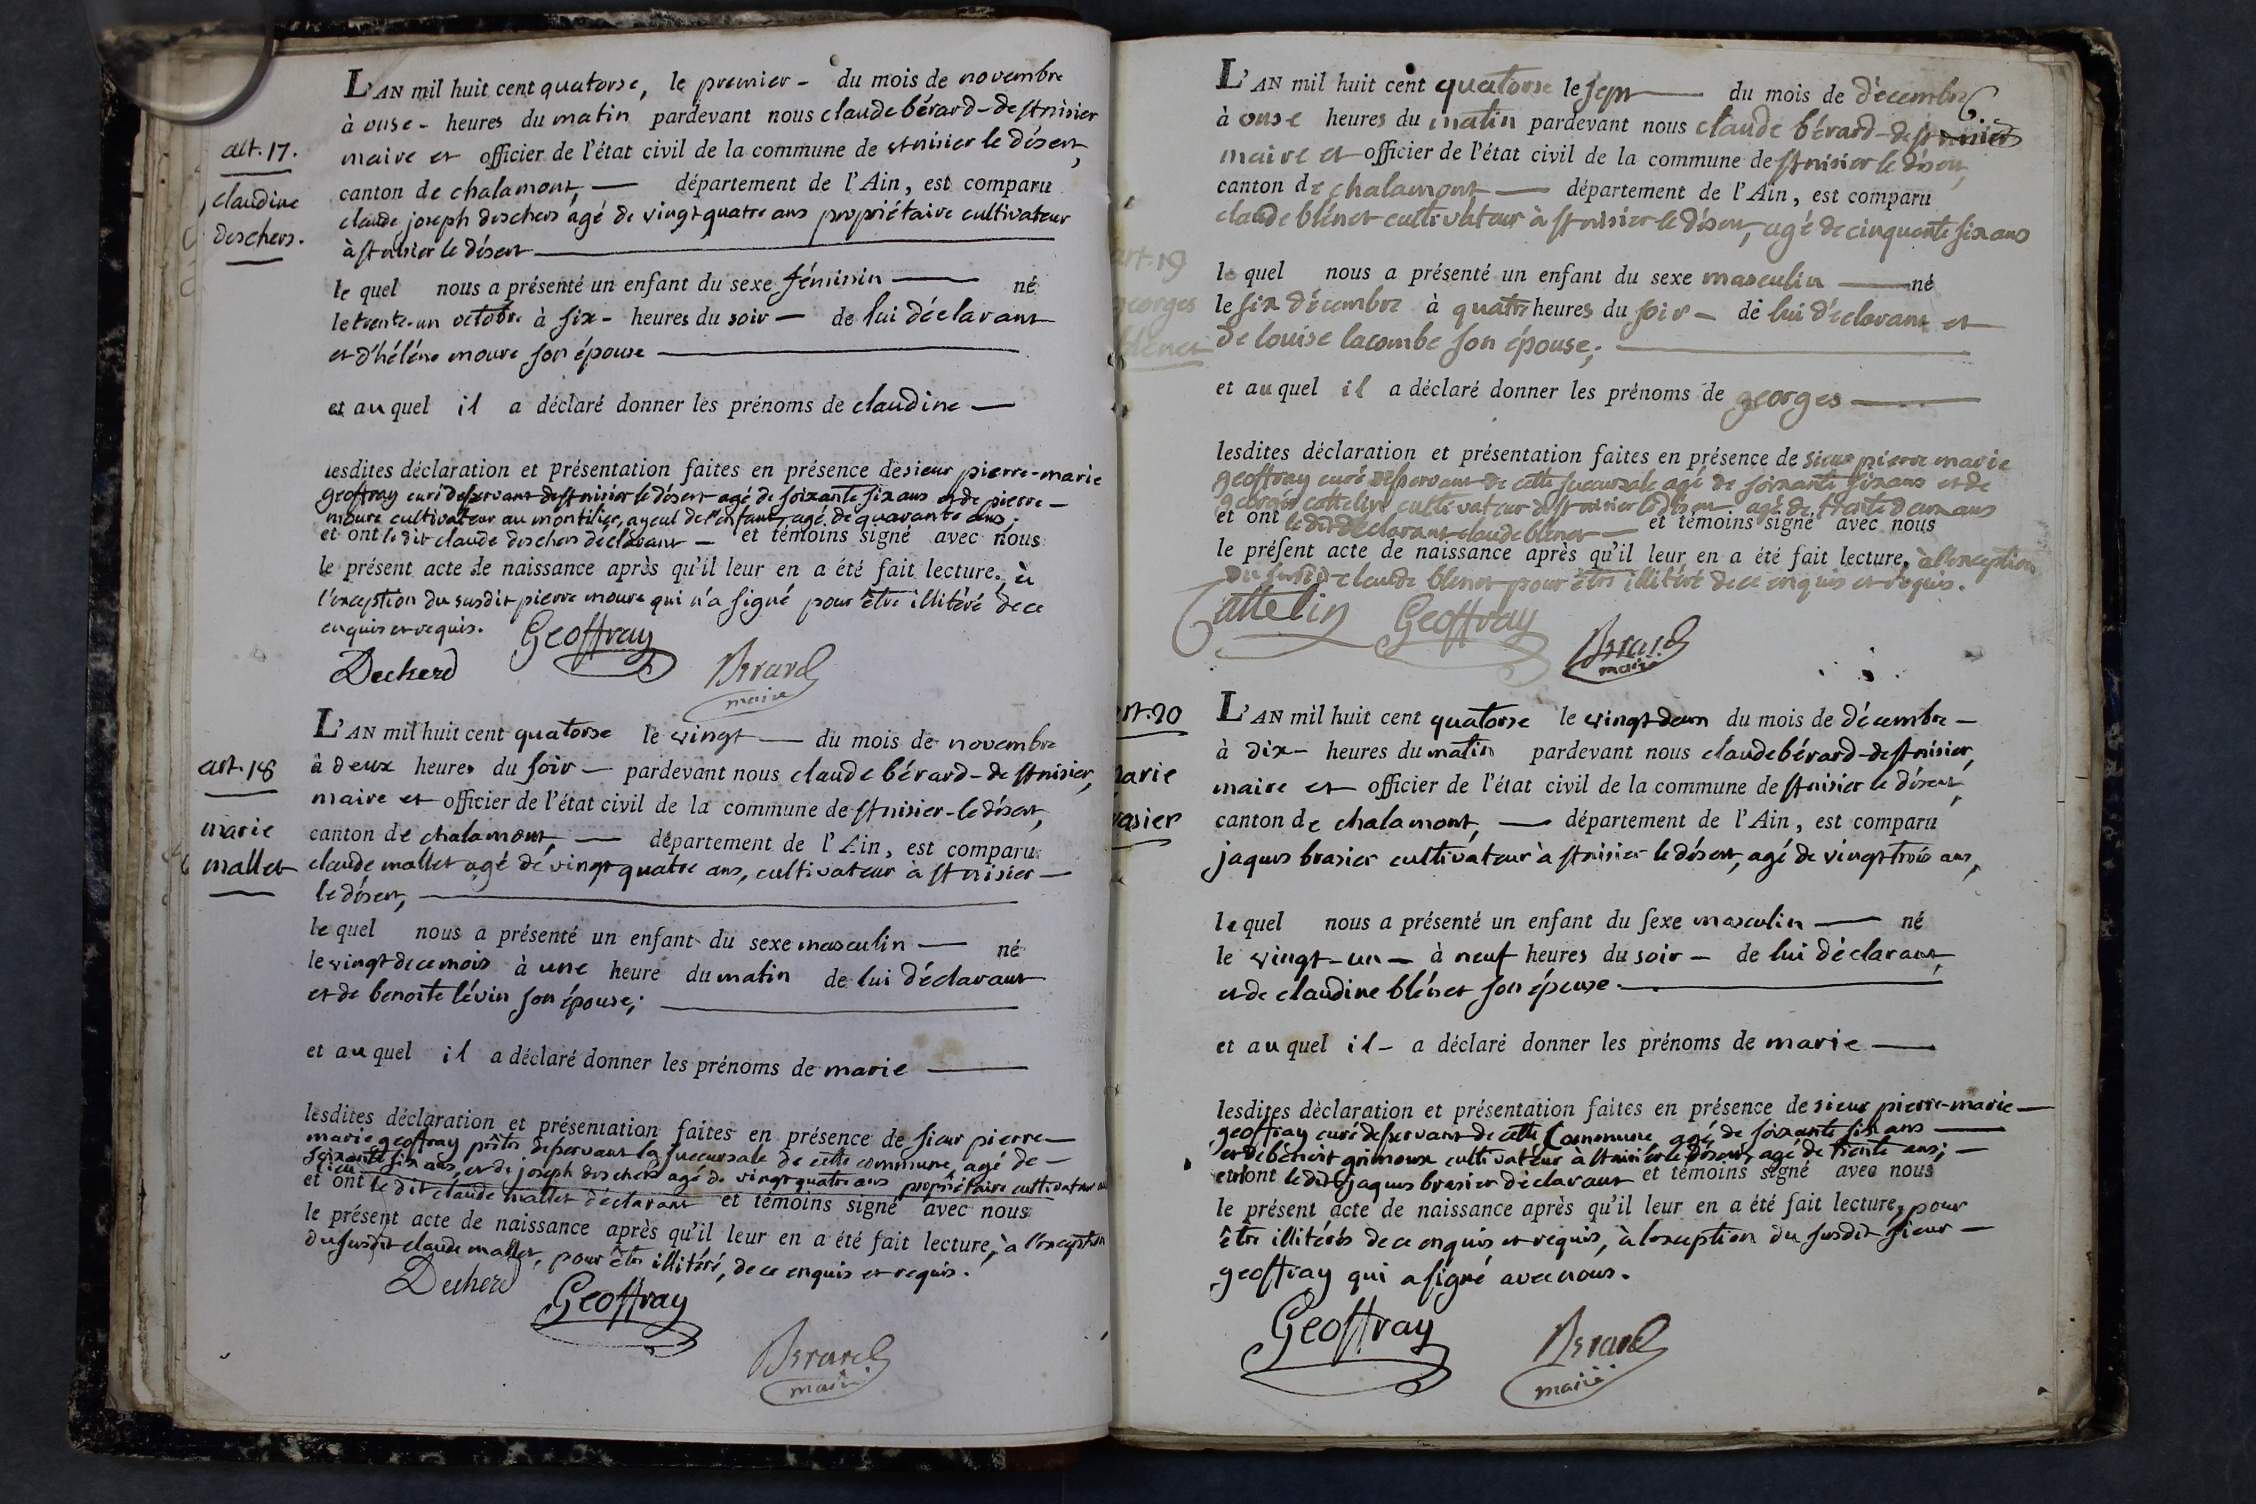 L'AN mil huit cent quatorse, le premier - du mois de novembre
à onse - heures du matin pardevant nous claude bérard-de st nisier
art. 17.
maire et officier de l'état civil de la commune de st nisier le désert,
canton de chalamont, — département de l'Ain, est comparu
claudine
claude joseph deschers agé de vingt quatre ans propriétaire cultivateur
deschers.
à st nisier le désert —
le quel nous a présenté un enfant du sexe féminin — né
le trente-un octobre à six - heures du soir — de lui déclarant
et d'héléne moure son épouse —
et au quel il a déclaré donner les prénoms de claudine —
lesdites déclaration et présentation faites en présence de sieur pierre-marie
geoffray curé desservant de st nisier le désert agé de soixante six ans et de pierre —
moure cultivateur au montilier, ayeul de l'enfant, agé de quarante ans.
et ont le dit claude deschers déclarant — et témoins signé avec nous
le présent acte de naissance après qu'il leur en a été fait lecture, à
l'exception du susdit pierre moure qui n'a signé pour être illitéré de ce
enquis et requis.
Geoffray
Decherd
Brard
maire
L'AN mil huit cent quatorse le vingt — du mois de novembre
art. 18
à deux heures du soir — pardevant nous claude bérard-de st nisier,
maire et officier de l'état civil de la commune de st nisier-le désert,
marie
canton de chalamont, — département de l'Ain, est comparu
mallet
claude mallet agé de vingt quatre ans, cultivateur à st nisier —
le désert, —
le quel nous a présenté un enfant du sexe masculin — né
le vingt de ce mois à une heure du matin de lui déclarant
et de benoite lévin son épouse; —
et au quel il a déclaré donner les prénoms de marie —
lesdites déclaration et présentation faites en présence de sieur pierre —
marie geoffray prêtre desservant la succursale de cette commune, agé de —
soixante six ans, et de joseph deschers agé de vingt quatre ans propriétaire cultivateur au
lieu
et ont le dit claude mallet déclarant et témoins signé avec nous
le présent acte de naissance après qu'il leur en a été fait lecture, à l'exception
du susdit claude mallet, pour être illitéré, de ce enquis et requis.
Decherd
Geoffray
Brard
maire
L'AN mil huit cent quatorse le sept — du mois de décembre
à onse heures du matin pardevant nous claude bérard-de st nisier
maire et officier de l'état civil de la commune de st nisier le désert,
canton de chalamont — département de l'Ain, est comparu
claude blénet cultivateur à st nisier le désert, agé de cinquante six ans
art. 19
le quel nous a présenté un enfant du sexe masculin — né
georges
le six décembre à quatre heures du soir — de lui déclarant et
blénet
de louise lacombe son épouse; —
et au quel il a déclaré donner les prénoms de georges —
lesdites déclaration et présentation faites en présence de sieur pierre marie
geoffray curé desservant de cette succursale agé de soixante six ans et de
cultivateur à st nisier le désert agé de trente deux ans
et ont le dit déclarant claude blénet — et témoins signé avec nous
le présent acte de naissance après qu'il leur en a été fait lecture, à l'exception
du susdit claude blenet pour être illitéré de ce enquis et requis.
Cattelin
Geoffray
Brard
maire
art. 20
L'AN mil huit cent quatorse le vingt deux du mois de décembre —
à dix - heures du matin pardevant nous claude bérard-de st nisier,
marie
maire et officier de l'état civil de la commune de st nisier le désert,
brasier
canton de chalamont, — département de l'Ain, est comparu
jaques brasier cultivateur à st nisier le désert, agé de vingt trois ans,
le quel nous a présenté un enfant du sexe masculin — né
le vingt-un — à neuf heures du soir — de lui déclarant,
et de claudine blénet son épouse —
et au quel il - a déclaré donner les prénoms de marie —
lesdites déclaration et présentation faites en présence de sieur pierre-marie —
geoffray curé desservant de cette commune, agé de soixante six ans —
et de bénoit grimoux cultivateur à st nisier le désert, agé de trente ans; —
et ont le dit jaques brasier déclarant et témoins signé avec nous
le présent acte de naissance après qu'il leur en a été fait lecture, pour
être illitérés de ce enquis et requis, à l'exception du susdit sieur —
geoffray qui a signé avec nous.
Geoffray
Brard
maire